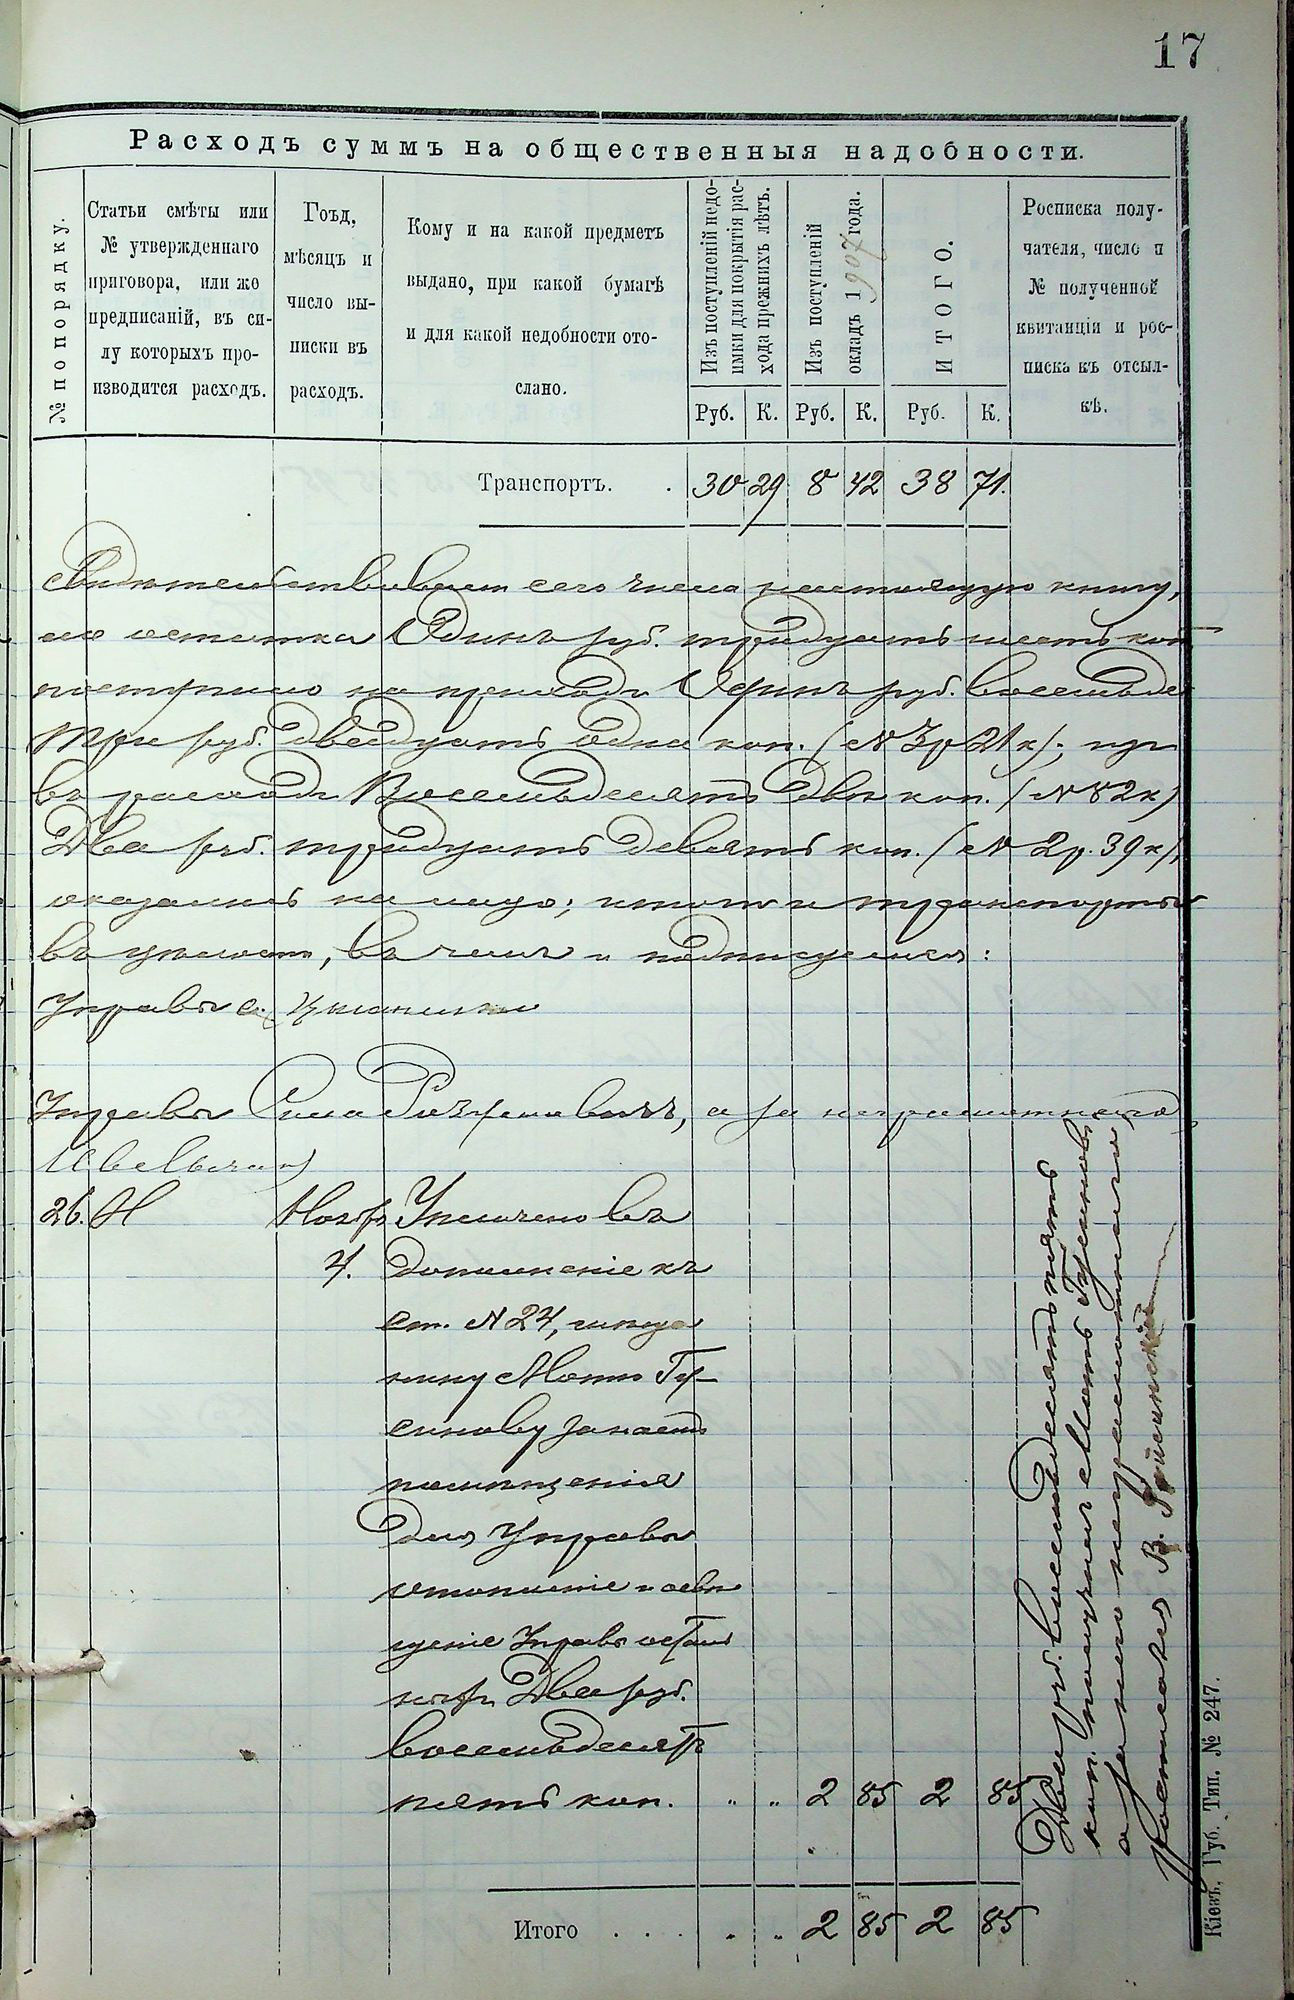 17
Расходъ суммъ на общественныя надобности.
№ по порядку.
Статьи смѣты или
№ утвержденнаго
приговора, или же
предписаній, въ си-
лу которыхъ про-
изводится расходъ.
Гоъд,
мѣсяцъ и
число вы-
писки въ
расходъ.
Кому и на какой предметъ
выдано, при какой бумагѣ
и для какой недобности ото-
слано.
Изъ поступленій недо-
имки для покрытія рас-
хода прежнихъ лѣтъ.
Изъ поступленій
окладъ 1907 года.
ИТОГО.
Росписка полу-
чателя, число и
№ полученной
квитанціи и рос-
писка къ отсыл-
кѣ.
Руб. К. Руб. К. Руб. К.
Транспортъ. . 30 29 8 42 38 71.
сего числа настоящую книгу,
остатка Одинъ руб. тридцать шесть коп
поступило на приходъ руб.
Три руб. двадцать одна коп. (№ 3р 21к);
въ расходъ Восемьдесятъ двѣ коп. (№ 82к)
Два руб. тридцать девять коп. (№ 2р. 39к),
оказались на лицо; итоги и транспорты
въ, въ чемъ и подписуемся:
Управы
Управы, а за неграмотнаго
26. Н Ноябр Уплачено въ
4. дополненіе къ
ст. № 24,
нину Мотю Гу-
синову за наемъ
помѣщенія
для Управы
отопленіе и освѣ
щеніе Управы
Два руб.
восемьдесятъ
пять коп. „ „ 2 85 2 85
Два руб. восемьдесятъ пять
коп. получилъ Моть Гусиновъ,
а за него неграмотнаго,
росписался В.
Итого . . . . „ „ 2 85 2 85
Кіевъ, Губ. Тип. № 247.